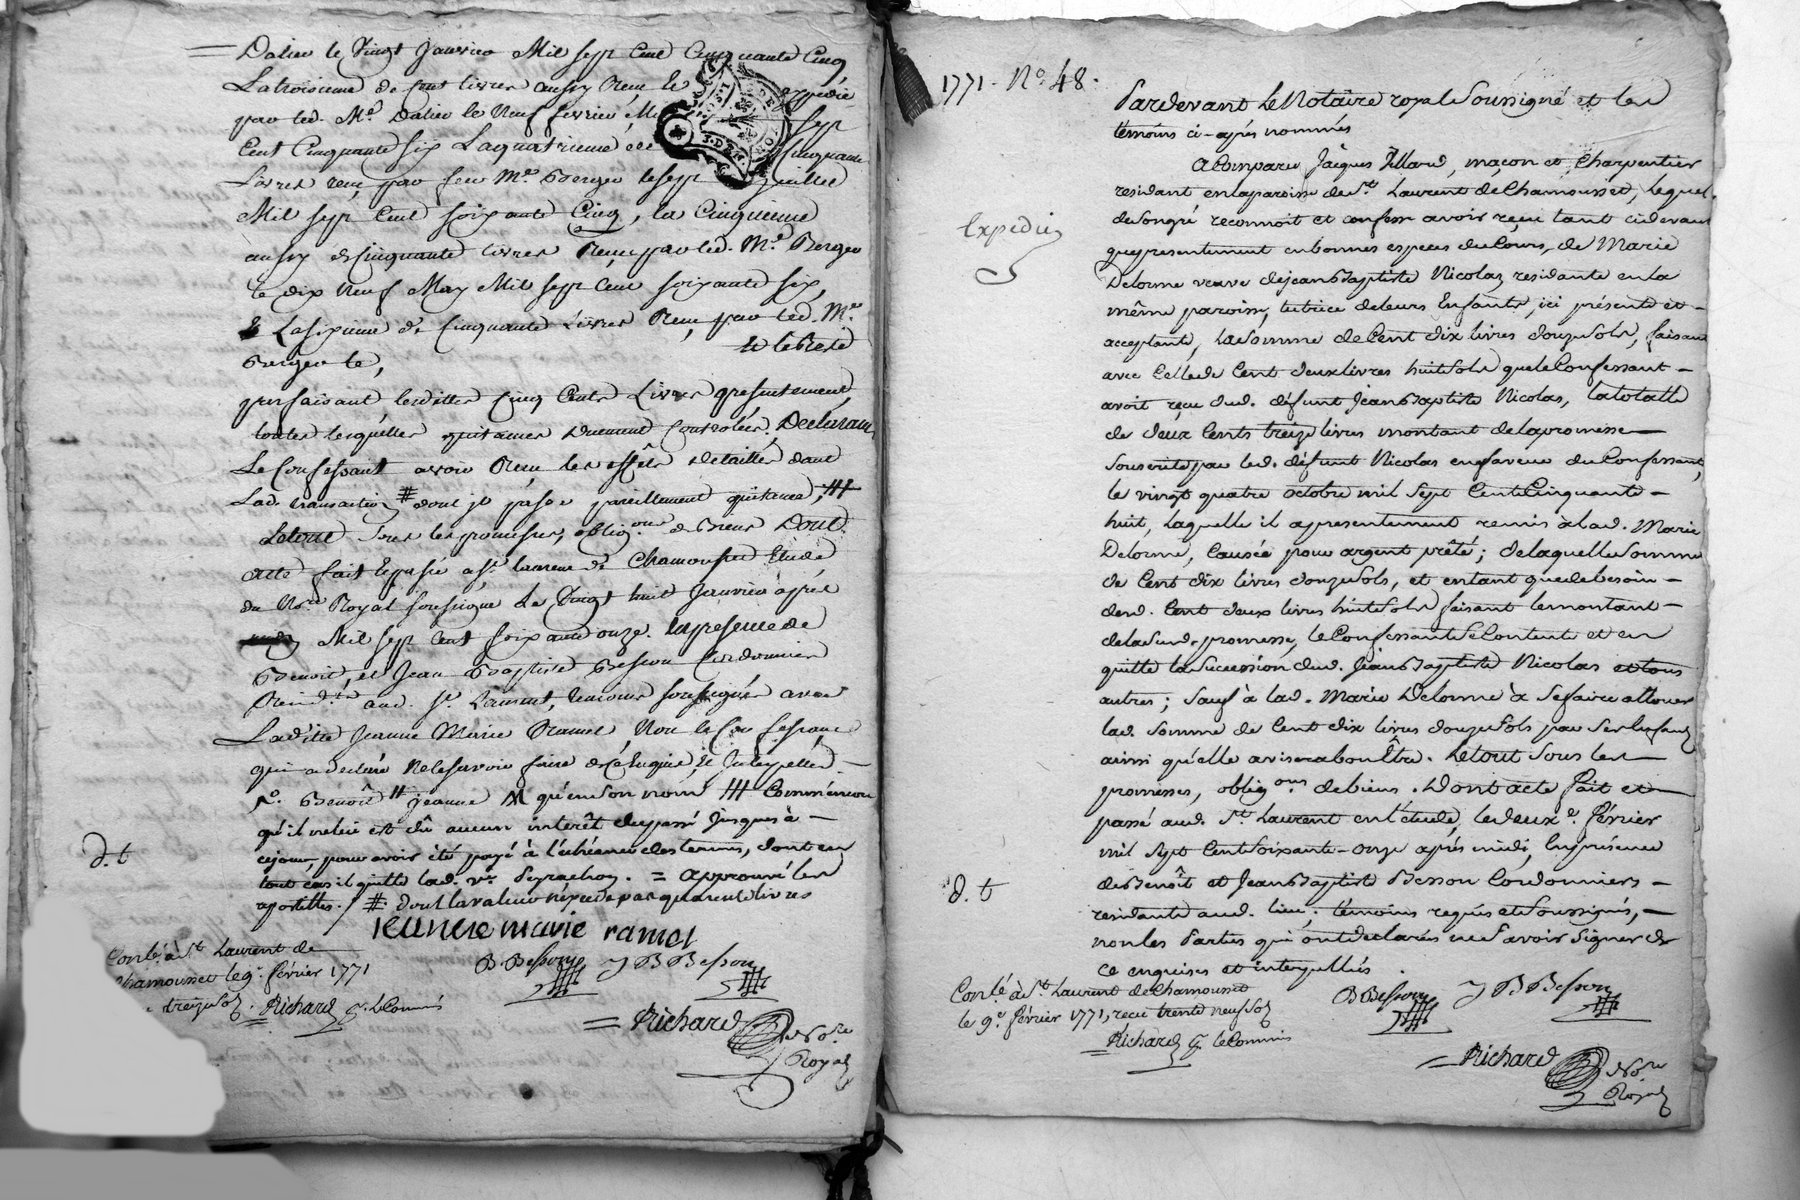 Dalieu le Vingt Janvier Mil sept Cent Cinquante Cinq
La troisieme de Cent livres aussy Reçu le expedie
par led. Me. Dalieu le Neuf fevrier Mil sept
Cent Cinquante six La quatrieme de Cinquante
Livres reçu par feu Me. Berger le sept Juillet
Mil sept Cent soixante Cinq, la Cinquieme
aussy de Cinquante livres Reçu par led. Me. Berger
le dix Neuf May Mil sept Cent soixante six,
& La sixieme de Cinquante Livres Reçu par led. Me.
Berger le, Et le Reste
parfaisant lesdittes Cinq Cents Livres presentement,
toutes lesquelles quitances Duement Controlées. Declarant
Le Confessant avoir Reçu les effets detaillés dans
Lad. transaction # dont il passe pareillement quitance, ##
Le tout sous les promesses, obligons. de Biens Dont.
acte fait et passé a st. Laurent de Chamousset Etude
du Nore Royal soussigné Le Vingt huit Janvier après
midy Mil sept cent soixante onze. En presence de
Benoit, et Jean Baptiste Besson Cordonniers
Residts. aud. st. Laurent, temoins soussignés avec
Laditte Jeanne Marie Ramel, Non le Confessant
qui a declaré Ne le savoir faire de Ce Enquis, & Interpellé —
Benoit # jeanne qu'en son nom ### Commencoux
qu'il ne lui est dû aucun interêt du passé Jusques à —
ce jour, pour avoir été payé à l'échéance des termes, dont en
tout cas il quitte lad. ve. Peyrachon. = approuvé les
apostilles. / # dont la valeur n'excede pas quarante livres
d. t
Jeunne marie ramel
Conlé. à St. Laurent de
Chamousset le 9e. février 1771
treize sols. Richard p. le Commis
B Besson J B Besson
= Richard
Nore
Royal
1771 - No. 48.
Expedié
Pardevant Le Notaire royal Soussigné et les
témoins ci-après nommés
A Comparu Jàques Villard, maçon et Charpentier
residant en la paroisse de St. Laurent de Chamousset, lequel
de son gré reconnoit et confesse avoir reçu tant cidevant
que presentement en bonnes especes du Cours, de Marie
Delorme veuve de jean Baptiste Nicolas residante en la
même paroisse, tutrice de leurs Enfants, ici présente et —
acceptante, la Somme de Cent dix livres douze sols, faisant
avec Celle de Cent deux livres huit sols que le Confessant —
avoit reçu dud. défunt Jean Baptiste Nicolas, la totalle
de deux Cents treize livres montant de la promesse —
Souscrite par led. défunt Nicolas en faveur du Confessant,
le vingt quatre octobre mil Sept Cent Cinquante —
huit, laquelle il a presentement remis à lad. Marie
Delorme, Causée pour argent prêté; de laquelle Somme
de Cent dix livres douze sols, et entant que de besoin —
desd. Cent deux livres huit sols faisant le montant —
de la susd. promesse, le Confessant se Contente et en
quitte la Succession dud. Jean Baptiste Nicolas et tous
autres; Sauf à lad. Marie Delorme à Se faire allouer
lad. Somme de Cent dix livres douze sols par Ses Enfants
ainsi qu'elle avisera bon Être. Le tout Sous les —
promesses, obligons. de biens. Dont acte fait et —
passé aud. St. Laurent en l'étude, le deux e. février
mil Sept Cent Soixante-onze après midi, En présence
de Benoît et Jean Baptiste Besson Cordonniers —
residants aud. lieu; témoins requis et Soussignés, —
non les Parties qui ont declarés ne Savoir Signer de
Ce enquises et interpellées
d. t
B Besson J B Besson
Conlé. à St. Laurent de Chamousset
le 9e. février 1771, reçu trente neuf sols
Richard p. le Commis
= Richard
Nore
Royal